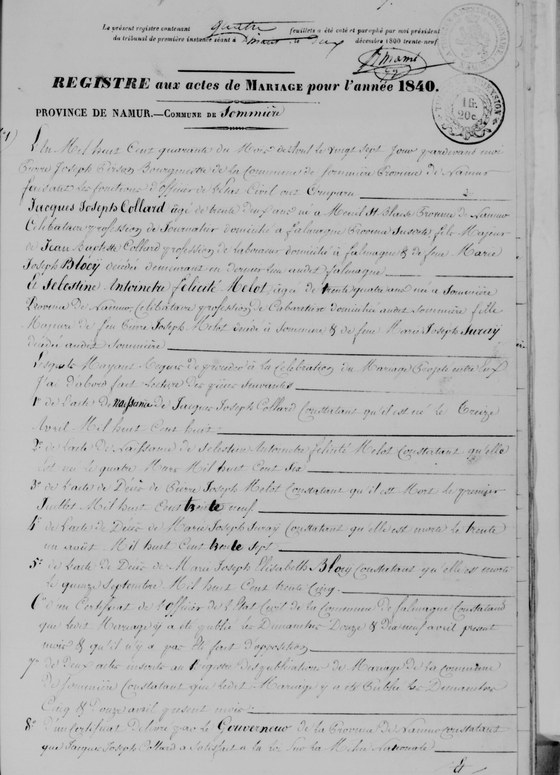 Le présent registre contenant quatre feuillets a été coté et paraphé par moi président
du tribunal de première instance séant à Dinant le dix décembre 1800 trente neuf
REGISTRE aux actes de MARIAGE pour l'année 1840.
PROVINCE DE NAMUR.—COMMUNE DE Sommière
L'an Mil huit Cent quarante du Mois d'avril le vingt sept Jour pardevant moi
Pierre Joseph Bourgmestre de la Commune de Sommière Province de Namur
faisant les fonctions d'officier de l'Etat Civil ont Comparu
Jacques Joseph Collard âgé de trente deux ans né à Mesnil St Blaise Province de Namur
Célibataire profession de Journalier domicilié à falmagne Province susdite fils Majeur
de Jean Baptiste Collard profession de laboureur domicilié à falmagne & de feue Marie
Joseph Blocy décédée demeurant en dernier lieu audit falmagne
Et Celestine Antoinette félicité Melot âgée de trente quatre ans née à Sommière
Province de Namur Célibataire profession de Cabaretière domiciliée audit Sommière fille
Majeure de feu Pierre Joseph Melot décédé à Sommière & de feue Marie Joseph
décédée audit Sommière
Lesquels Mayant Requis de procéder à la Célébration du Mariage projeté entre Eux
J'ai d'abord fait Lecture des pièces suivantes
1º de l'acte de naissance de Jacques Joseph Collard Constatant qu'il est né le treize
avril Mil huit Cent huit
2º de l'acte de Naissance de Celestine Antoinette félicité Melot Constatant qu'elle
est née le quatre Mars Mil huit Cent Six
3º de l'acte de Décès de Pierre Joseph Melot Constatant qu'il est Mort le premier
Juillet Mil huit Cent trente neuf
4º de l'acte de Décès de Marie Joseph Constatant qu'elle est morte le trente
un août Mil huit Cent trente sept
5º de l'acte de Décès de Marie Joseph Elisabeth Blocy Constatant qu'elle est morte
le quinze Septembre Mil huit Cent trente Cinq
6º d'un Certificat de l'officier de l'Etat Civil de la Commune de falmagne Constatant
que ledit Mariage y a été publié les Dimanches Douze & dix neuf avril présent
mois & qu'il n'y a pas été fait d'opposition
7º de deux actes inscrits au Registre des publications de Mariage de la commune
de Sommière Constatant que ledit Mariage y a été publié les Dimanches
Cinq & Douze avril présent mois
8º d'un Certificat délivré par le Gouverneur de la Province de Namur Constatant
que Jacques Joseph Collard a Satisfait à la loi Sur la Milice Nationale